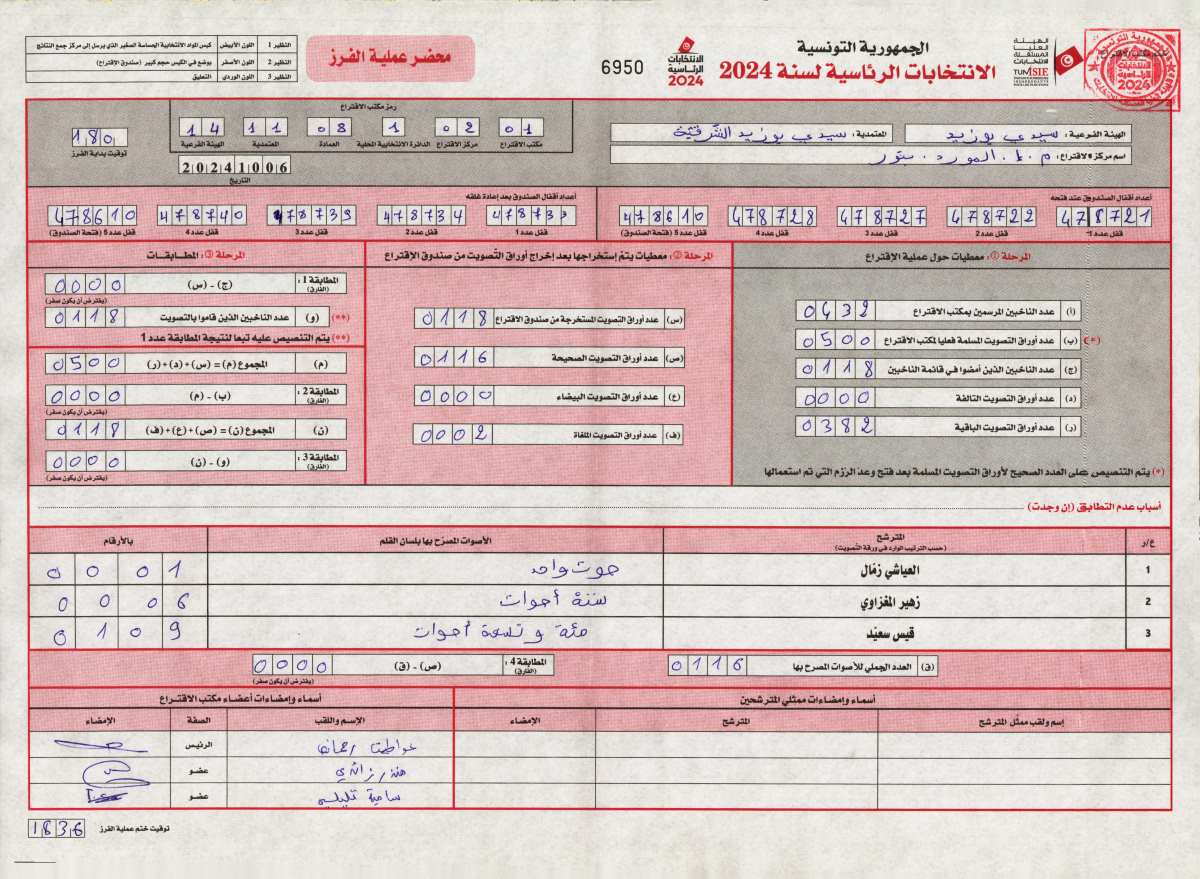 الجمهورية التونسية
الانتخابات الرئاسية لسنة 2024
الهيئة العليا المستقلة للانتخابات
TUNISIE
الانتخابات الرئاسية 2024
6950
محضر عملية الفرز
النظير 1 اللون الأبيض كيس المواد الانتخابية الحساسة الصغير الذي يرسل إلى مركز جمع النتائج
النظير 2 اللون الأصفر يوضع في الكيس حجم كبير (صندوق الإقتراع)
النظير 3 اللون الوردي التعليق
الهيئة الفرعية: سيدي بوزيد المعتمدية: سيدي بوزيد الشرقية
اسم مركز الاقتراع: م. ا. المورد. ستور
رمز مكتب الاقتراع
01 02 1 08 11 14
مكتب الاقتراع مركز الاقتراع الدائرة الانتخابية المحلية العمادة المعتمدية الهيئة الفرعية
20241006
التاريخ
180
توقيت بداية الفرز
أعداد أقفال الصندوق عند فتحه
478721 478722 478727 478728 478610
قفل عدد 1 قفل عدد 2 قفل عدد 3 قفل عدد 4 قفل عدد 5 (فتحة الصندوق)
أعداد أقفال الصندوق بعد إعادة غلقه
478733 478734 478739 478740 478610
قفل عدد 1 قفل عدد 2 قفل عدد 3 قفل عدد 4 قفل عدد 5 (فتحة الصندوق)
المرحلة ①: معطيات حول عملية الإقتراع
(أ) عدد الناخبين المرسمين بمكتب الاقتراع 0432
(*) (ب) عدد أوراق التصويت المسلمة فعليا لمكتب الاقتراع 0500
(ج) عدد الناخبين الذين أمضوا في قائمة الناخبين 0118
(د) عدد أوراق التصويت التالفة 0000
(ر) عدد أوراق التصويت الباقية 0382
(*) يتم التنصيص على العدد الصحيح لأوراق التصويت المسلمة بعد فتح وعد الرزم التي تم استعمالها
المرحلة ②: معطيات يتم إستخراجها بعد إخراج أوراق التصويت من صندوق الإقتراع
(س) عدد أوراق التصويت المستخرجة من صندوق الاقتراع 0118
(ص) عدد أوراق التصويت الصحيحة 0116
(ع) عدد أوراق التصويت البيضاء 0000
(ف) عدد أوراق التصويت الملغاة 0002
المرحلة ③: المطابقات
المطابقة 1: (الفارق) (ج) - (س) 0000
(يفترض أن يكون صفر)
(**) (و) عدد الناخبين الذين قاموا بالتصويت 0118
(**) يتم التنصيص عليه تبعا لنتيجة المطابقة عدد 1
(م) المجموع (م) = (س) + (د) + (ر) 0500
المطابقة 2: (الفارق) (ب) - (م) 0000
(يفترض أن يكون صفر)
(ن) المجموع (ن) = (ص) + (ع) + (ف) 0118
المطابقة 3: (الفارق) (و) - (ن) 0000
(يفترض أن يكون صفر)
أسباب عدم التطابق (إن وجدت)
ع/ر المترشح (حسب الترتيب الوارد في ورقة التصويت) الأصوات المصرح بها بلسان القلم بالأرقام
1 العياشي زمّال صوت واحد 0001
2 زهير المغزاوي ستة أصوات 0006
3 قيس سعيّد مئة و تسعة أصوات 0109
(ق) العدد الجملي للأصوات المصرح بها 0116
المطابقة 4: (الفارق) (ص) - (ق) 0000
(يفترض أن يكون صفر)
أسماء وإمضاءات ممثلي المترشحين
إسم ولقب ممثل المترشح المترشح الإمضاء
أسماء وإمضاءات أعضاء مكتب الاقتراع
الإسم واللقب الصفة الإمضاء
الرئيس
عضو
سامية عضو
توقيت ختم عملية الفرز 1836